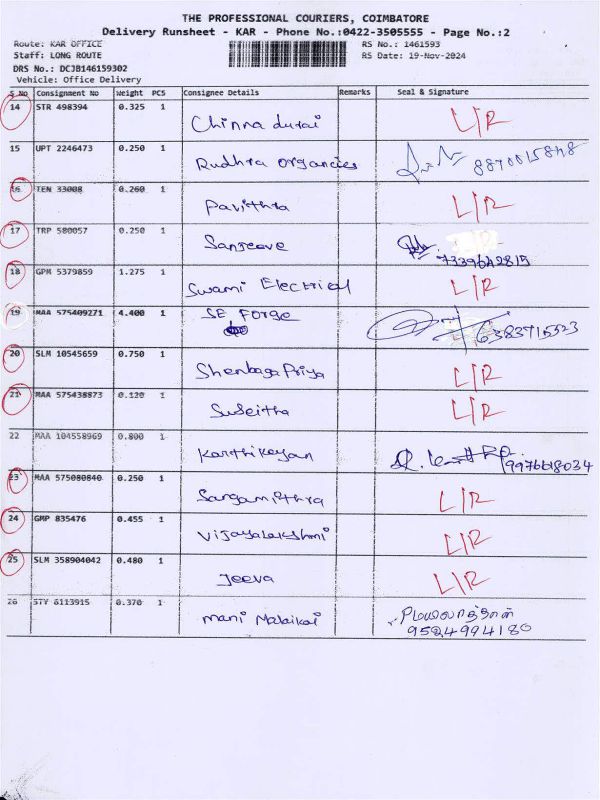 THE PROFESSIONAL COURIERS, COIMBATORE
Delivery Runsheet - KAR - Phone No.:0422-3505555 - Page No.:2
Route: KAR OFFICE RS No.: 1461593
Staff: LONG ROUTE RS Date: 19-Nov-2024
DRS No.: DCJB146159302
Vehicle: Office Delivery
S No Consignment No Weight PCS Consignee Details Remarks Seal & Signature
14 STR 498394 0.325 1 Chinna durai L/R
15 UPT 2246473 0.250 1 Rudhra organcies 8870015848
16 TEN 33008 0.260 1 Pavithra L/R
17 TRP 580057 0.250 1 Sanjeeve 7339642815
18 GPM 5379859 1.275 1 Swami Electrical L/R
19 MAA 575409271 4.400 1 SE Forge 6383715523
20 SLM 10545659 0.750 1 Shenbaga Priya L/R
21 MAA 575438873 0.120 1 Suseitha L/R
22 MAA 104558969 0.800 1 Karthikeyan 9976618034
23 MAA 575080840 0.250 1 Sangamithra L/R
24 GMP 835476 0.455 1 Vijayalakshmi L/R
25 SLM 358904042 0.480 1 Jeeva L/R
26 STY 6113915 0.370 1 Mani Malaikai
9524994180